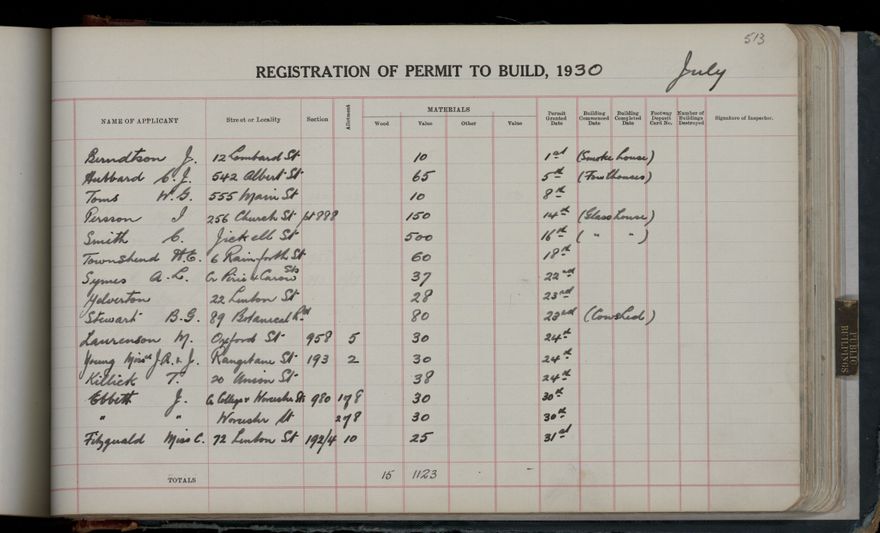 513
REGISTRATION OF PERMIT TO BUILD, 1930 July
NAME OF APPLICANT Street or Locality Section Allotment MATERIALS Wood Value Other Value Permit Granted Date Building Commenced Date Building Completed Date Footway Deposit Card No. Number of Buildings Destroyed Signature of Inspector.
Berndtson J. 12 Lombard St 10 1st (Smoke house)
Hubbard C. J. 542 Albert St 65 5th (Fowlhouses)
Toms W. G. 555 Main St 10 8th
Persson I 256 Church St pt 888 150 14th (Glass house)
Smith C. Jickell St 500 16th ( " " )
Townshend H. E. 6 Rainforth St 60 18th
Symes A. L. Cr Pirie & Carow Sts 37 22nd
Yelverton 22 Linton St 28 23rd
Stewart B. G. 89 Botanical Rd 80 23rd (Cowshed)
Laurenson M. Oxford St 958 5 30 24th
Young Miss J. R. & J. Rangitane St 193 2 30 24th
Killick T. 20 Union St 38 24th
Ebbett J. Cr College & Worcester Sts 980 1 & 8 30 30th
" " Worcester St 2 & 8 30 30th
Fitzgerald Miss C. 72 Linton St 192/4 10 25 31st
TOTALS 15 1123 - -
PUBLIC BUILDINGS